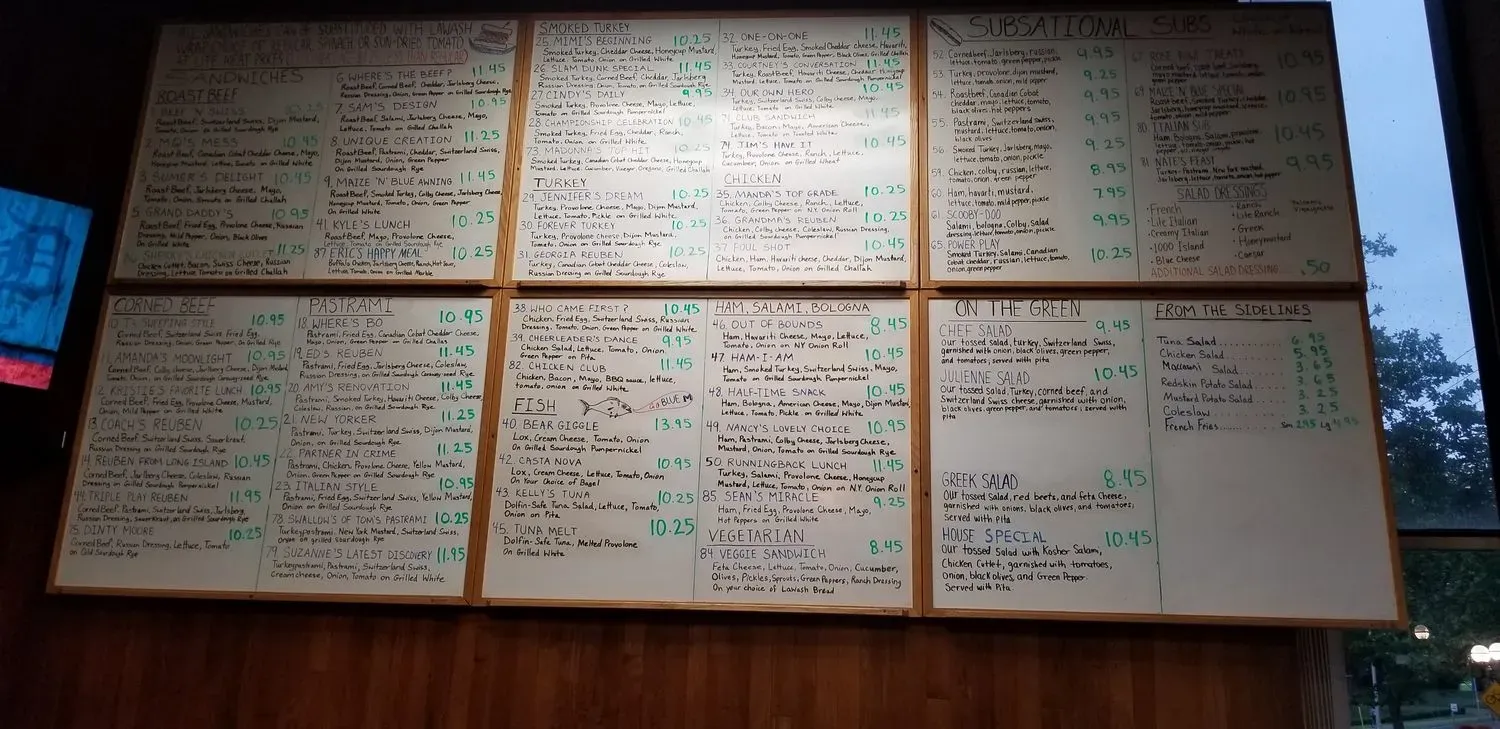 SANDWICHES CAN BE SUBSTITUTED WITH LAWASH
WRAP CHOICE OF REGULAR, SPINACH OR SUN-DRIED TOMATO
SANDWICHES
ROAST BEEF
BEEF 'N SWISS 10.25
Roast Beef, Switzerland Swiss, Dijon Mustard,
Tomato, Onion on Grilled Sourdough Rye
2. MESS 10.45
Roast Beef, Canadian Cobat Cheddar Cheese, Mayo,
Honeycup Mustard, Lettuce, Tomato on Grilled White
3. SUMER'S DELIGHT 10.45
Roast Beef, Jarlsberg Cheese, Mayo,
Tomato, Onion, Sprouts on Grilled Sourdough Rye
5. GRAND DADDY'S 10.95
Roast Beef, Fried Egg, Provolone Cheese, Russian
Dressing, Mild Pepper, Onion, Black Olives
On Grilled White
11.25
Chicken Cutlet, Bacon, Swiss Cheese, Russian
Dressing, Lettuce, Tomato on Grilled Challah
6. WHERE'S THE BEEF? 11.45
Roast Beef, Corned Beef, Cheddar, Jarlsberg Cheese,
Russian Dressing, Onion, Green Pepper on Grilled Sourdough Rye
7. SAM'S DESIGN 10.95
Roast Beef, Salami, Jarlsberg Cheese, Mayo,
Lettuce, Tomato on Grilled Challah
8 UNIQUE CREATION 11.25
Roast Beef, Pastrami, Cheddar, Switzerland Swiss,
Dijon Mustard, Onion, Green Pepper
On Grilled Sourdough Rye
9. MAIZE 'N' BLUE AWNING 11.45
Roast Beef, Smoked Turkey, Colby Cheese, Jarlsberg Cheese,
Honeycup Mustard, Tomato, Onion, Green Pepper
On Grilled White
41 KYLE'S LUNCH 10.25
Roast Beef, Mayo, Provolone Cheese,
Lettuce, Tomato on Grilled Sourdough Rye
87 ERIC'S HAPPY MEAL 10.25
Buffalo Chicken, Jarlsberg Cheese, Ranch, Hot Sour,
Lettuce, Tomato, Onion on Grilled Marble
SMOKED TURKEY
25. MIMI'S BEGINNING 10.25
Smoked Turkey, Cheddar Cheese, Honeycup Mustard,
Lettuce, Tomato on Grilled White
26. SLAM DUNK SPECIAL 11.45
Smoked Turkey, Corned Beef, Cheddar, Jarlsberg
Russian Dressing, Onion, Tomato on Grilled Sourdough Rye
27. CINDY'S DAILY 9.95
Smoked Turkey, Provolone Cheese, Mayo, Lettuce,
Tomato on Grilled Sourdough Pumpernickel
28. CHAMPIONSHIP CELEBRATION 10.45
Smoked Turkey, Fried Egg, Cheddar, Ranch,
Tomato, Onion on Grilled White
73. MADONNA'S TOP HIT 10.25
Smoked Turkey, Canadian Cobat Cheddar Cheese, Honeycup
Mustard, Lettuce, Cucumber, Vinegar, Oregano, Grilled Challah
TURKEY
29. JENNIFER'S DREAM 10.25
Turkey, Provolone Cheese, Mayo, Dijon Mustard,
Lettuce, Tomato, Pickle on Grilled White
30. FOREVER TURKEY 10.25
Turkey, Provolone Cheese, Dijon Mustard,
Tomato, Onion on Grilled Sourdough Rye
31. GEORGIA REUBEN 10.25
Turkey, Canadian Cobat Cheddar Cheese, Coleslaw,
Russian Dressing on Grilled Sourdough Rye
32 ONE-ON-ONE 11.45
Turkey, Fried Egg, Smoked Cheddar Cheese, Havarti,
Honeycup Mustard, Tomato, Green Pepper, Black Olives, Onion on Grilled White
33. COURTNEY'S CONVERSATION 11.45
Turkey, Roast Beef, Havarti Cheese, Cheddar, Honeycup
Mustard, Tomato, Green Pepper on Grilled Sourdough Pumpernickel
34. OUR OWN HERO 10.45
Turkey, Switzerland Swiss, Colby Cheese, Mayo,
Tomato, Onion on Grilled Sourdough Rye
71. CLUB SANDWICH 11.45
Turkey, Bacon, Mayo, American Cheese,
Lettuce, Tomato on Toasted White
74. JIM'S HAVE IT 10.45
Turkey, Provolone Cheese, Ranch, Lettuce,
Cucumber, Onion on Grilled Wheat
CHICKEN
35. MANDA'S TOP GRADE 10.25
Chicken, Colby Cheese, Ranch, Lettuce,
Tomato, Green Pepper on N.Y. Onion Roll
36. GRANDMA'S REUBEN 10.25
Chicken, Colby Cheese, Coleslaw, Russian Dressing,
on Grilled Sourdough Pumpernickel
37 FOUL SHOT 10.45
Chicken, Ham, Havarti Cheese, Cheddar, Dijon Mustard,
Lettuce, Tomato, Onion on Grilled Challah
SUBSATIONAL SUBS
52. Corned beef, Jarlsberg, russian, 9.95
lettuce, tomato, green pepper, pickle
53. Turkey, provolone, dijon mustard, 9.25
lettuce, tomato, onion, mild pepper
54. Roastbeef, Canadian Cobat 9.95
cheddar, mayo, lettuce, tomato,
black olives, hot peppers
55. Pastrami, Switzerland Swiss, 9.95
mustard, lettuce, tomato, onion,
black olives
56. Smoked Turkey, Jarlsberg, mayo, 9.25
lettuce, tomato, onion, pickle
59. Chicken, colby, russian, lettuce, 8.95
tomato, onion, green pepper
60. Ham, havarti, mustard, 7.95
lettuce, tomato, mild pepper, pickle
61. SCOOBY-DOO 9.95
Salami, bologna, Colby, Salad
dressing, lettuce, tomato, onion, pickle
65. POWER PLAY 10.25
Smoked Turkey, Salami, Canadian
Cobat cheddar, russian, lettuce, tomato,
onion, green pepper
67. ROSE BOWL TREAT 10.95
69. MAIZE 'N BLUE SPECIAL 10.95
80. ITALIAN SUB 10.45
Ham, Bologna, Salami, provolone,
81. NATE'S FEAST 9.95
Turkey, Pastrami, New York mustard,
Jarlsberg, lettuce, tomato, onion, pickle
SALAD DRESSINGS
• French
• Lite Italian
• Creamy Italian
• 1000 Island
• Blue Cheese
• Ranch
• Lite Ranch
• Greek
• Honeymustard
• Caesar
Balsamic
Vinaigrette
ADDITIONAL SALAD DRESSING .... .50
CORNED BEEF
10. TJ'S SWEEPING STYLE 10.95
Corned Beef, Switzerland Swiss, Fried Egg,
Russian Dressing, Onion on Grilled Sourdough Rye
11. AMANDA'S MOONLIGHT 10.95
Corned Beef, Colby Cheese, Jarlsberg Cheese, Dijon Mustard,
Tomato, Onion on Grilled Sourdough Caraway-seed Rye
12. KRISTIE'S FAVORITE LUNCH 10.95
Corned Beef, Fried Egg, Provolone Cheese, Mustard,
Onion, Mild Pepper on Grilled White
13. COACH'S REUBEN 10.25
Corned Beef, Switzerland Swiss, Sauerkraut,
Russian Dressing on Grilled Sourdough Rye
14. REUBEN FROM LONG ISLAND 10.45
Corned Beef, Jarlsberg Cheese, Coleslaw, Russian
Dressing on Grilled Sourdough Pumpernickel
44. TRIPLE PLAY REUBEN 11.95
Corned Beef, Pastrami, Switzerland Swiss, Jarlsberg,
Russian Dressing, sauerkraut, on Grilled Sourdough Rye
75. DINTY MOORE 10.25
Corned Beef, Russian Dressing, Lettuce, Tomato
on Cold Sourdough Rye
PASTRAMI
18. WHERE'S BO 10.95
Pastrami, Canadian Cobat Cheddar Cheese,
Mayo, Green Pepper on Grilled Challah
19. ED'S REUBEN 11.45
Pastrami, Fried Egg, Jarlsberg Cheese, Coleslaw,
Russian Dressing, on Grilled Sourdough Caraway-seed Rye
20. AMY'S RENOVATION 11.45
Pastrami, Smoked Turkey, Havarti Cheese, Colby Cheese,
Coleslaw, Russian on Grilled Sourdough Rye
21. NEW YORKER 11.25
Pastrami, Turkey, Switzerland Swiss, Dijon Mustard,
Onion, on Grilled Sourdough Rye
22. PARTNER IN CRIME 11.25
Pastrami, Chicken, Provolone Cheese, Yellow Mustard,
Onion, Green Pepper on Grilled Sourdough Rye
23. ITALIAN STYLE 10.95
Pastrami, Fried Egg, Switzerland Swiss, Yellow Mustard,
Onion on Grilled Sourdough Rye
78. SWALLOW'S OF TOM'S PASTRAMI 10.25
Turkeypastrami, New York Mustard, Switzerland Swiss,
onion on grilled Sourdough Rye
79. SUZANNE'S LATEST DISCOVERY 11.95
Turkeypastrami, Pastrami, Switzerland Swiss,
Creamcheese, Onion, Tomato on Grilled White
38. WHO CAME FIRST? 10.45
Chicken, Fried Egg, Switzerland Swiss, Russian
Dressing, Tomato, Onion, Green Pepper on Grilled White
39. CHEERLEADER'S DANCE 9.95
Chicken Salad, Lettuce, Tomato, Onion,
Green Pepper on Pita
82. CHICKEN CLUB 11.45
Chicken, Bacon, Mayo, BBQ sauce, lettuce,
tomato, onion on Grilled White
FISH
GO BLUE M
40. BEAR GIGGLE 13.95
Lox, Cream Cheese, Tomato, Onion
On Grilled Sourdough Pumpernickel
42. CASTA NOVA 10.95
Lox, Cream Cheese, Lettuce, Tomato, Onion
On Your Choice of Bagel
43. KELLY'S TUNA 10.25
Dolfin-Safe Tuna Salad, Lettuce, Tomato,
Onion on Pita
45. TUNA MELT 10.25
Dolfin-Safe Tuna, Melted Provolone
On Grilled White
HAM, SALAMI, BOLOGNA
46. OUT OF BOUNDS 8.45
Ham, Havarti Cheese, Mayo, Lettuce,
Tomato, Onion on NY Onion Roll
47. HAM-I-AM 10.45
Ham, Smoked Turkey, Switzerland Swiss, Mayo,
Tomato on Grilled Sourdough Pumpernickel
48. HALF-TIME SNACK 10.45
Ham, Bologna, American Cheese, Mayo, Dijon Mustard,
Lettuce, Tomato, Pickle on Grilled White
49. NANCY'S LOVELY CHOICE 10.95
Ham, Pastrami, Colby Cheese, Jarlsberg Cheese,
Mustard, Tomato, Onion on Grilled Sourdough Rye
50. RUNNINGBACK LUNCH 11.45
Turkey, Salami, Provolone Cheese, Honeycup
Mustard, Lettuce, Tomato, Onion on N.Y. Onion Roll
85. SEAN'S MIRACLE 9.25
Ham, Fried Egg, Provolone Cheese, Mayo,
Hot Peppers on Grilled White
VEGETARIAN
84. VEGGIE SANDWICH 8.45
Feta Cheese, Lettuce, Tomato, Onion, Cucumber,
Olives, Pickles, Sprouts, Green Peppers, Ranch Dressing
On your choice of Lawash Bread
ON THE GREEN
CHEF SALAD 9.45
Our tossed salad, turkey, Switzerland Swiss,
garnished with onion, black olives, green pepper,
and tomatoes; served with pita
JULIENNE SALAD 10.45
Our tossed salad, Turkey, corned beef, and
Switzerland Swiss cheese, garnished with onion,
black olives, green pepper, and tomatoes; served with
pita
GREEK SALAD 8.45
Our tossed Salad, red beets, and feta Cheese,
garnished with onions, black olives, and tomatoes;
Served with pita
HOUSE SPECIAL 10.45
Our tossed Salad with Kosher Salami,
Chicken Cutlet, garnished with tomatoes,
Onion, black olives, and Green Pepper.
Served with Pita.
FROM THE SIDELINES
Tuna Salad .......... 6.95
Chicken Salad ........ 5.95
Macaroni Salad ....... 3.65
Redskin Potato Salad ..... 3.65
Mustard Potato Salad ..... 3.25
Coleslaw ............ 3.25
French Fries ........ Sm 2.95 Lg 4.95